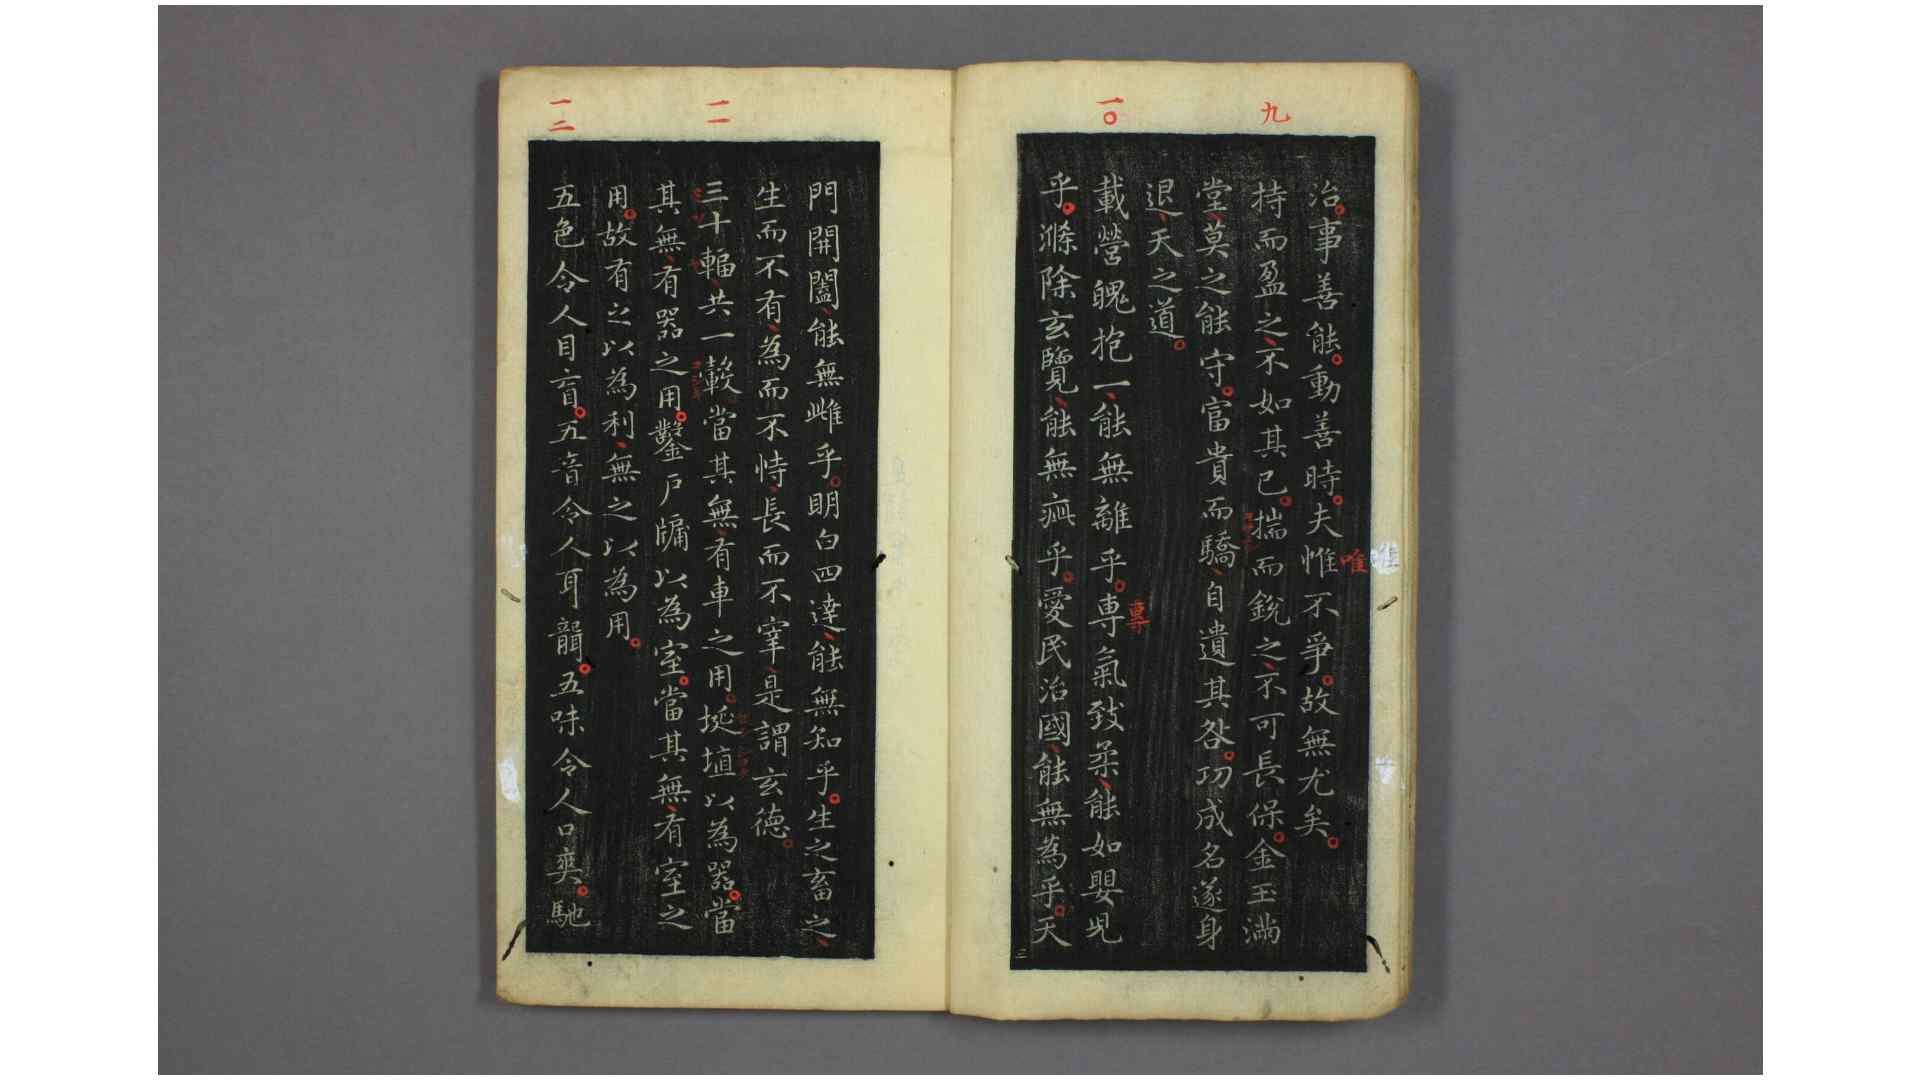 九
治事善能動善時夫惟不爭故無尤矣
唯
持而盈之不如其已揣而銳之不可長保金玉滿
堂莫之能守富貴而驕自遺其咎功成名遂身
退天之道
一〇
載營魄抱一能無離乎專氣致柔能如嬰兒
專
乎滌除玄覽能無疵乎愛民治國能無為乎天
三
門開闔能無雌乎明白四達能無知乎生之畜之
生而不有為而不恃長而不宰是謂玄德
一一
三十輻共一轂當其無有車之用埏埴以為器當
其無有器之用鑿戶牖以為室當其無有室之
用故有之以為利無之以為用
一二
五色令人目盲五音令人耳聾五味令人口爽馳